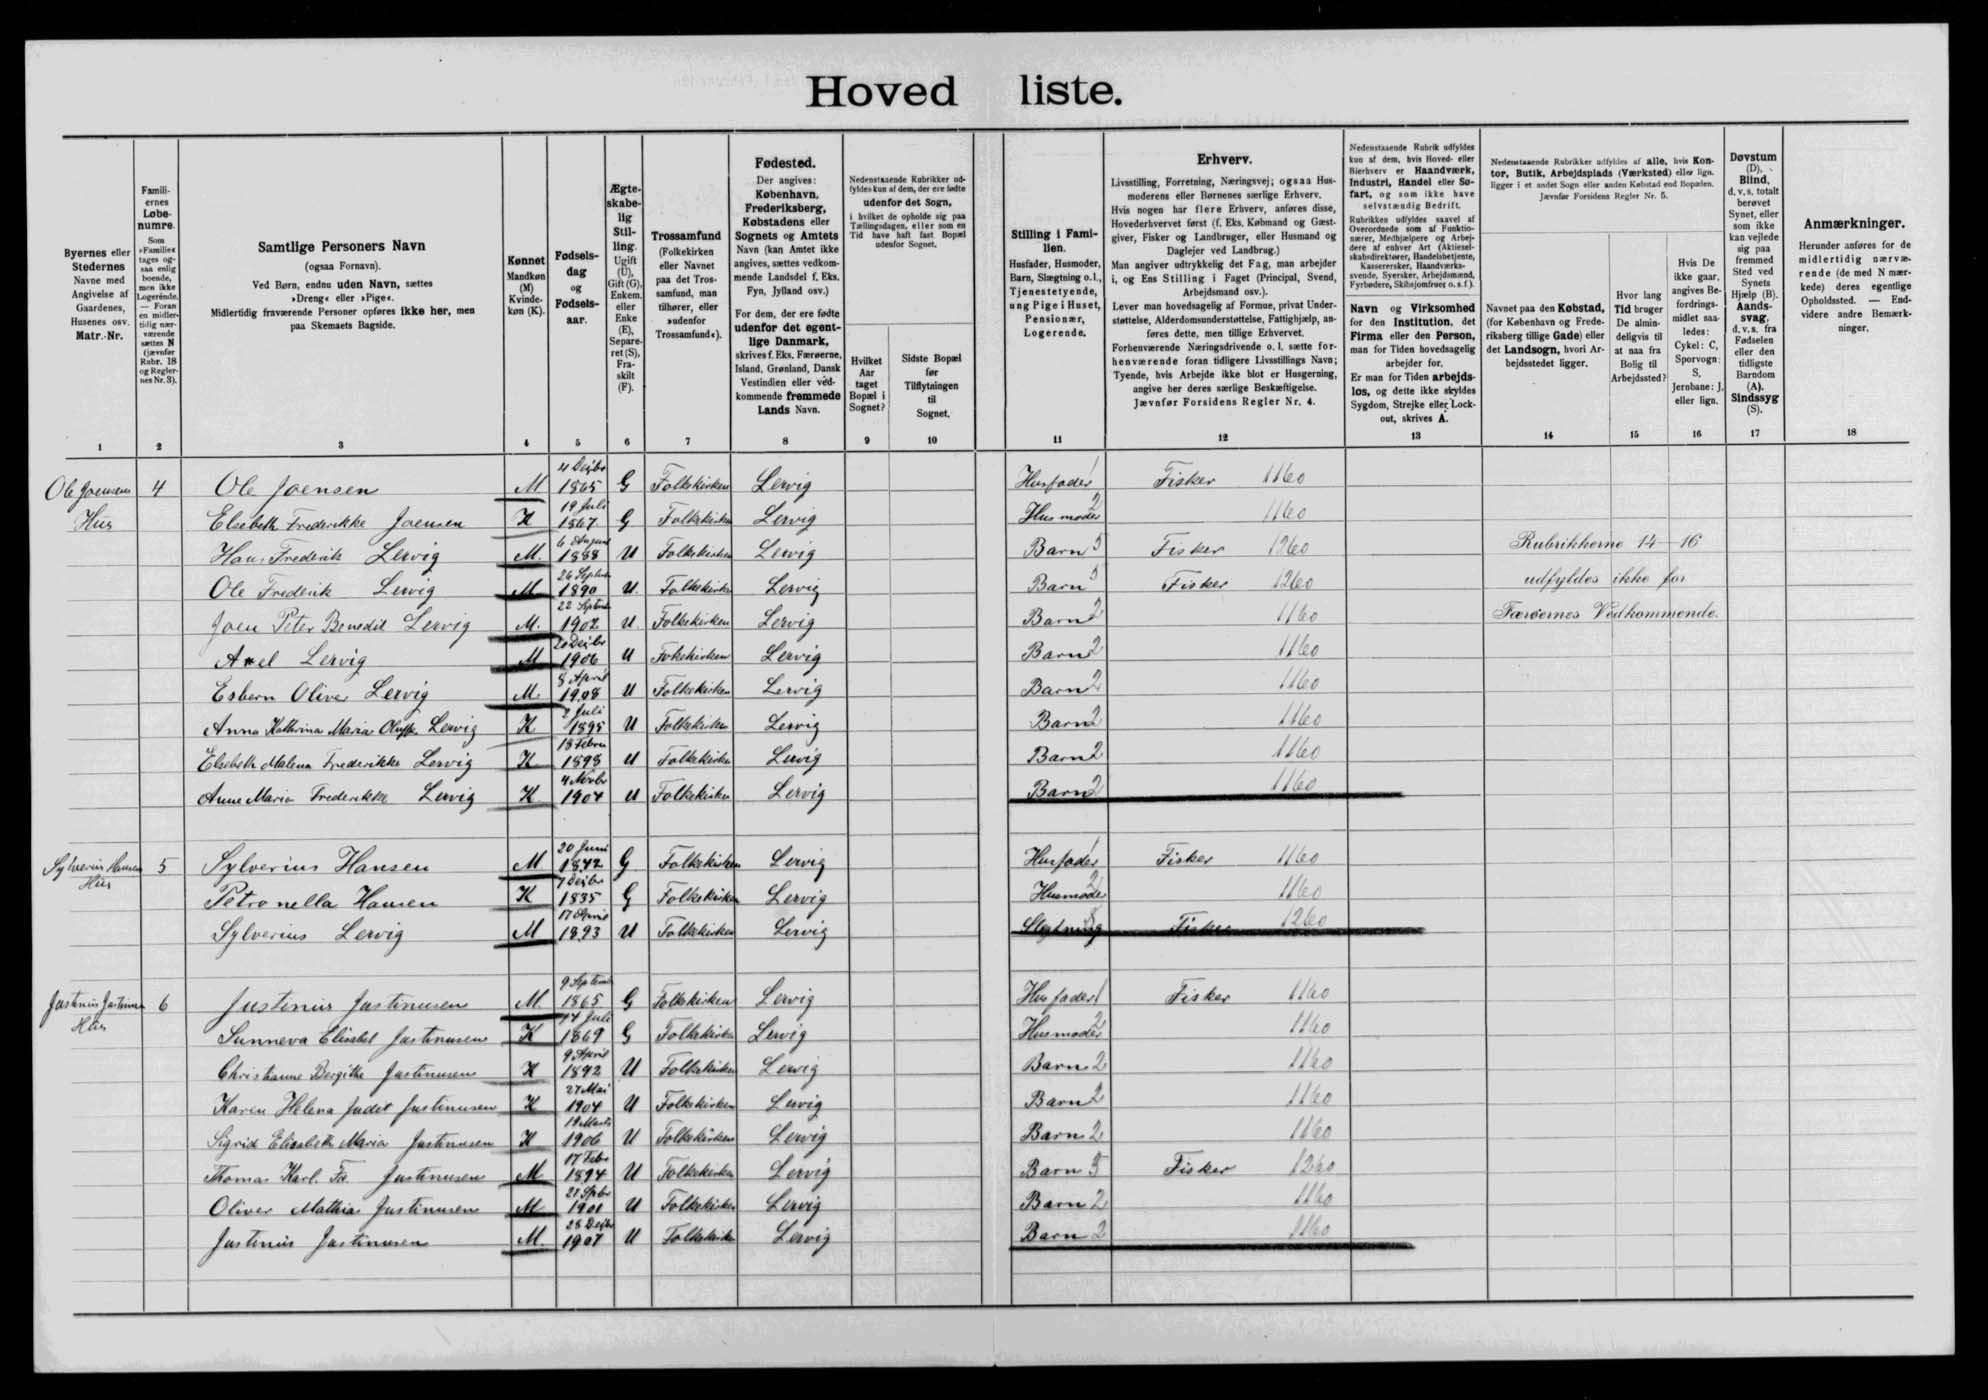 Hoved liste.
Byernes eller Stedernes Navne med Angivelse af Gaardenes, Husenes osv. Matr.-Nr.
Familiernes Løbenumre. Som »Familie« tages ogsaa enlig boende, men ikke Logerende. — Foran en midlertidig nærværende sættes N (jævnfør Rubr. 18 og Reglernes Nr. 3).
Samtlige Personers Navn
(ogsaa Fornavn).
Ved Børn, endnu uden Navn, sættes
»Dreng« eller »Pige«.
Midlertidig fraværende Personer opføres ikke her, men
paa Skemaets Bagside.
Kønnet Mandkøn (M) Kvindekøn (K).
Fødselsdag og Fødselsaar.
Ægteskabelig Stilling. Ugift (U), Gift (G), Enkem. eller Enke (E), Separeret (S), Fraskilt (F).
Trossamfund (Folkekirken eller Navnet paa det Trossamfund, man tilhører, eller »udenfor Trossamfund«).
Fødested.
Der angives: København, Frederiksberg, Købstadens eller Sognets og Amtets Navn (kan Amtet ikke angives, sættes vedkommende Landsdel f. Eks. Fyn, Jylland osv.)
For dem, der ere fødte udenfor det egentlige Danmark, skrives f. Eks. Færøerne, Island, Grønland, Dansk Vestindien eller vedkommende fremmede Lands Navn.
Nedenstaaende Rubrikker udfyldes kun af dem, der ere fødte udenfor det Sogn, i hvilket de opholde sig paa Tællingsdagen, eller som en Tid have haft fast Bopæl udenfor Sognet.
Hvilket Aar taget Bopæl i Sognet?
Sidste Bopæl før Tilflytningen til Sognet.
Stilling i Familien.
Husfader, Husmoder, Barn, Slægtning o.l., Tjenestetyende, ung Pige i Huset, Pensionær, Logerende.
Erhverv.
Livsstilling, Forretning, Næringsvej; ogsaa Husmoderens eller Børnenes særlige Erhverv.
Hvis nogen har flere Erhverv, anføres disse, Hovederhvervet først (f. Eks. Købmand og Gæstgiver, Fisker og Landbruger, eller Husmand og Daglejer ved Landbrug.)
Man angiver udtrykkelig det Fag, man arbejder i, og Ens Stilling i Faget (Principal, Svend, Arbejdsmand osv.).
Lever man hovedsagelig af Formue, privat Understøttelse, Alderdomsunderstøttelse, Fattighjælp, anføres dette, men tillige Erhvervet.
Forhenværende Næringsdrivende o. l. sætte forhenværende foran tidligere Livsstillings Navn; Tyende, hvis Arbejde ikke blot er Husgerning, angive her deres særlige Beskæftigelse.
Jævnfør Forsidens Regler Nr. 4.
Nedenstaaende Rubrik udfyldes kun af dem, hvis Hoved- eller Bierhverv er Haandværk, Industri, Handel eller Søfart, og som ikke have selvstændig Bedrift.
Rubrikken udfyldes saavel af Overordnede som af Funktionærer, Medhjælpere og Arbejdere af enhver Art (Aktieselskabsdirektører, Handelsbetjente, Kassererskær, Haandværkssvende, Syersker, Arbejdsmænd, Fyrbødere, Skibsjomfruer o. s. f.).
Navn og Virksomhed for den Institution, det Firma eller den Person, man for Tiden hovedsagelig arbejder for.
Er man for Tiden arbejdsløs, og dette ikke skyldes Sygdom, Strejke eller Lockout, skrives A.
Nedenstaaende Rubrikker udfyldes af alle, hvis Kontor, Butik, Arbejdsplads (Værksted) eller lign. ligger i et andet Sogn eller anden Købstad end Bopælen. Jævnfør Forsidens Regler Nr. 5.
Navnet paa den Købstad, (for København og Frederiksberg tillige Gade) eller det Landsogn, hvori Arbejdsstedet ligger.
Hvor lang Tid bruger De almindeligvis til at naa fra Bolig til Arbejdssted?
Hvis De ikke gaar, angives Befordringsmidlet saaledes: Cykel: C, Sporvogn: S, Jernbane: J, eller lign.
Døvstum (D), Blind, d. v. s. totalt berøvet Synet, eller som ikke kan vejlede sig paa fremmed Sted ved Synets Hjælp (B). Aandssvag, d. v. s. fra Fødselen eller den tidligste Barndom (A). Sindssyg (S).
Anmærkninger.
Herunder anføres for de midlertidig nærværende (de med N mærkede) deres egentlige Opholdssted. — Endvidere andre Bemærkninger.
1 2 3 4 5 6 7 8 9 10 11 12 13 14 15 16 17 18
Ole Joensens 4 Ole Joensen M 4 Decbr 1865 G Folkekirken Lervig Husfader 1 Fisker 1160
Hus Elsebeth Frederikke Joensen K 19 Juli 1867 G Folkekirken Lervig Husmoder 2 1160
Hans Frederik Lervig M. 6 August 1888 U Folkekirken Lervig Barn 5 Fisker 1260 Rubrikkerne 14–16
Ole Frederik Lervig M 26 Septbr 1890 U. Folkekirken Lervig Barn 5 Fisker 1260 udfyldes ikke for
Joen Peter Benedit Lervig M. 22 Septbr 1902 U. Folkekirken Lervig Barn 2 1160 Færøernes Vedkommende.
Axel Lervig M 20 Decbr 1906 U Folkekirken Lervig Barn 2 1160
Esbern Oliver Lervig M. 8 April 1908 U Folkekirken Lervig Barn 2 1160
Anna Kathrina Maria Lervig K 2 Juli 1895 U Folkekirken Lervig Barn 2 1160
Elsebeth Malena Frederikke Lervig K 18 Febru 1898 U Folkekirken Lervig Barn 2 1160
Anne Maria Frederikke Lervig K 4 Novbr 1904 U Folkekirken Lervig Barn 2 1160
Sylverius Hansen 5 Sylverius Hansen M 20 Juni 1842 G Folkekirken Lervig Husfader 1 Fisker 1160
Hus Petronella Hansen K 7 Decbr 1835 G Folkekirken Lervig Husmoder 2 1160
Sylverius Lervig M 17 April 1893 U Folkekirken Lervig Slegtning Fisker 1260
Justinus Justinusen 6 Justinus Justinusen M. 9 Septembr 1865 G Folkekirken Lervig Husfader 1 Fisker 1160
Hus Sunneva Elisabet Justinusen K 14 Juli 1869 G Folkekirken Lervig Husmoder 2 1160
Christianne Bergithe Justinusen K 9 April 1892 U Folkekirken Lervig Barn 2 1160
Karen Helena Judit Justinusen K 27 Mai 1904 U Folkekirken Lervig Barn 2 1160
Sigrid Elisabeth Maria Justinusen K 19 Marts 1906 U Folkekirken Lervig Barn 2 1160
Thomas Karl. Fr. Justinusen M 17 Febr 1894 U Folkekirken Lervig Barn 5 Fisker 1260
Oliver Mathias Justinusen M 1901 U Folkekirken Lervig Barn 2 1160
Justinus Justinusen M. 28 Decbr 1907 U Folkekirken Lervig Barn 2 1160